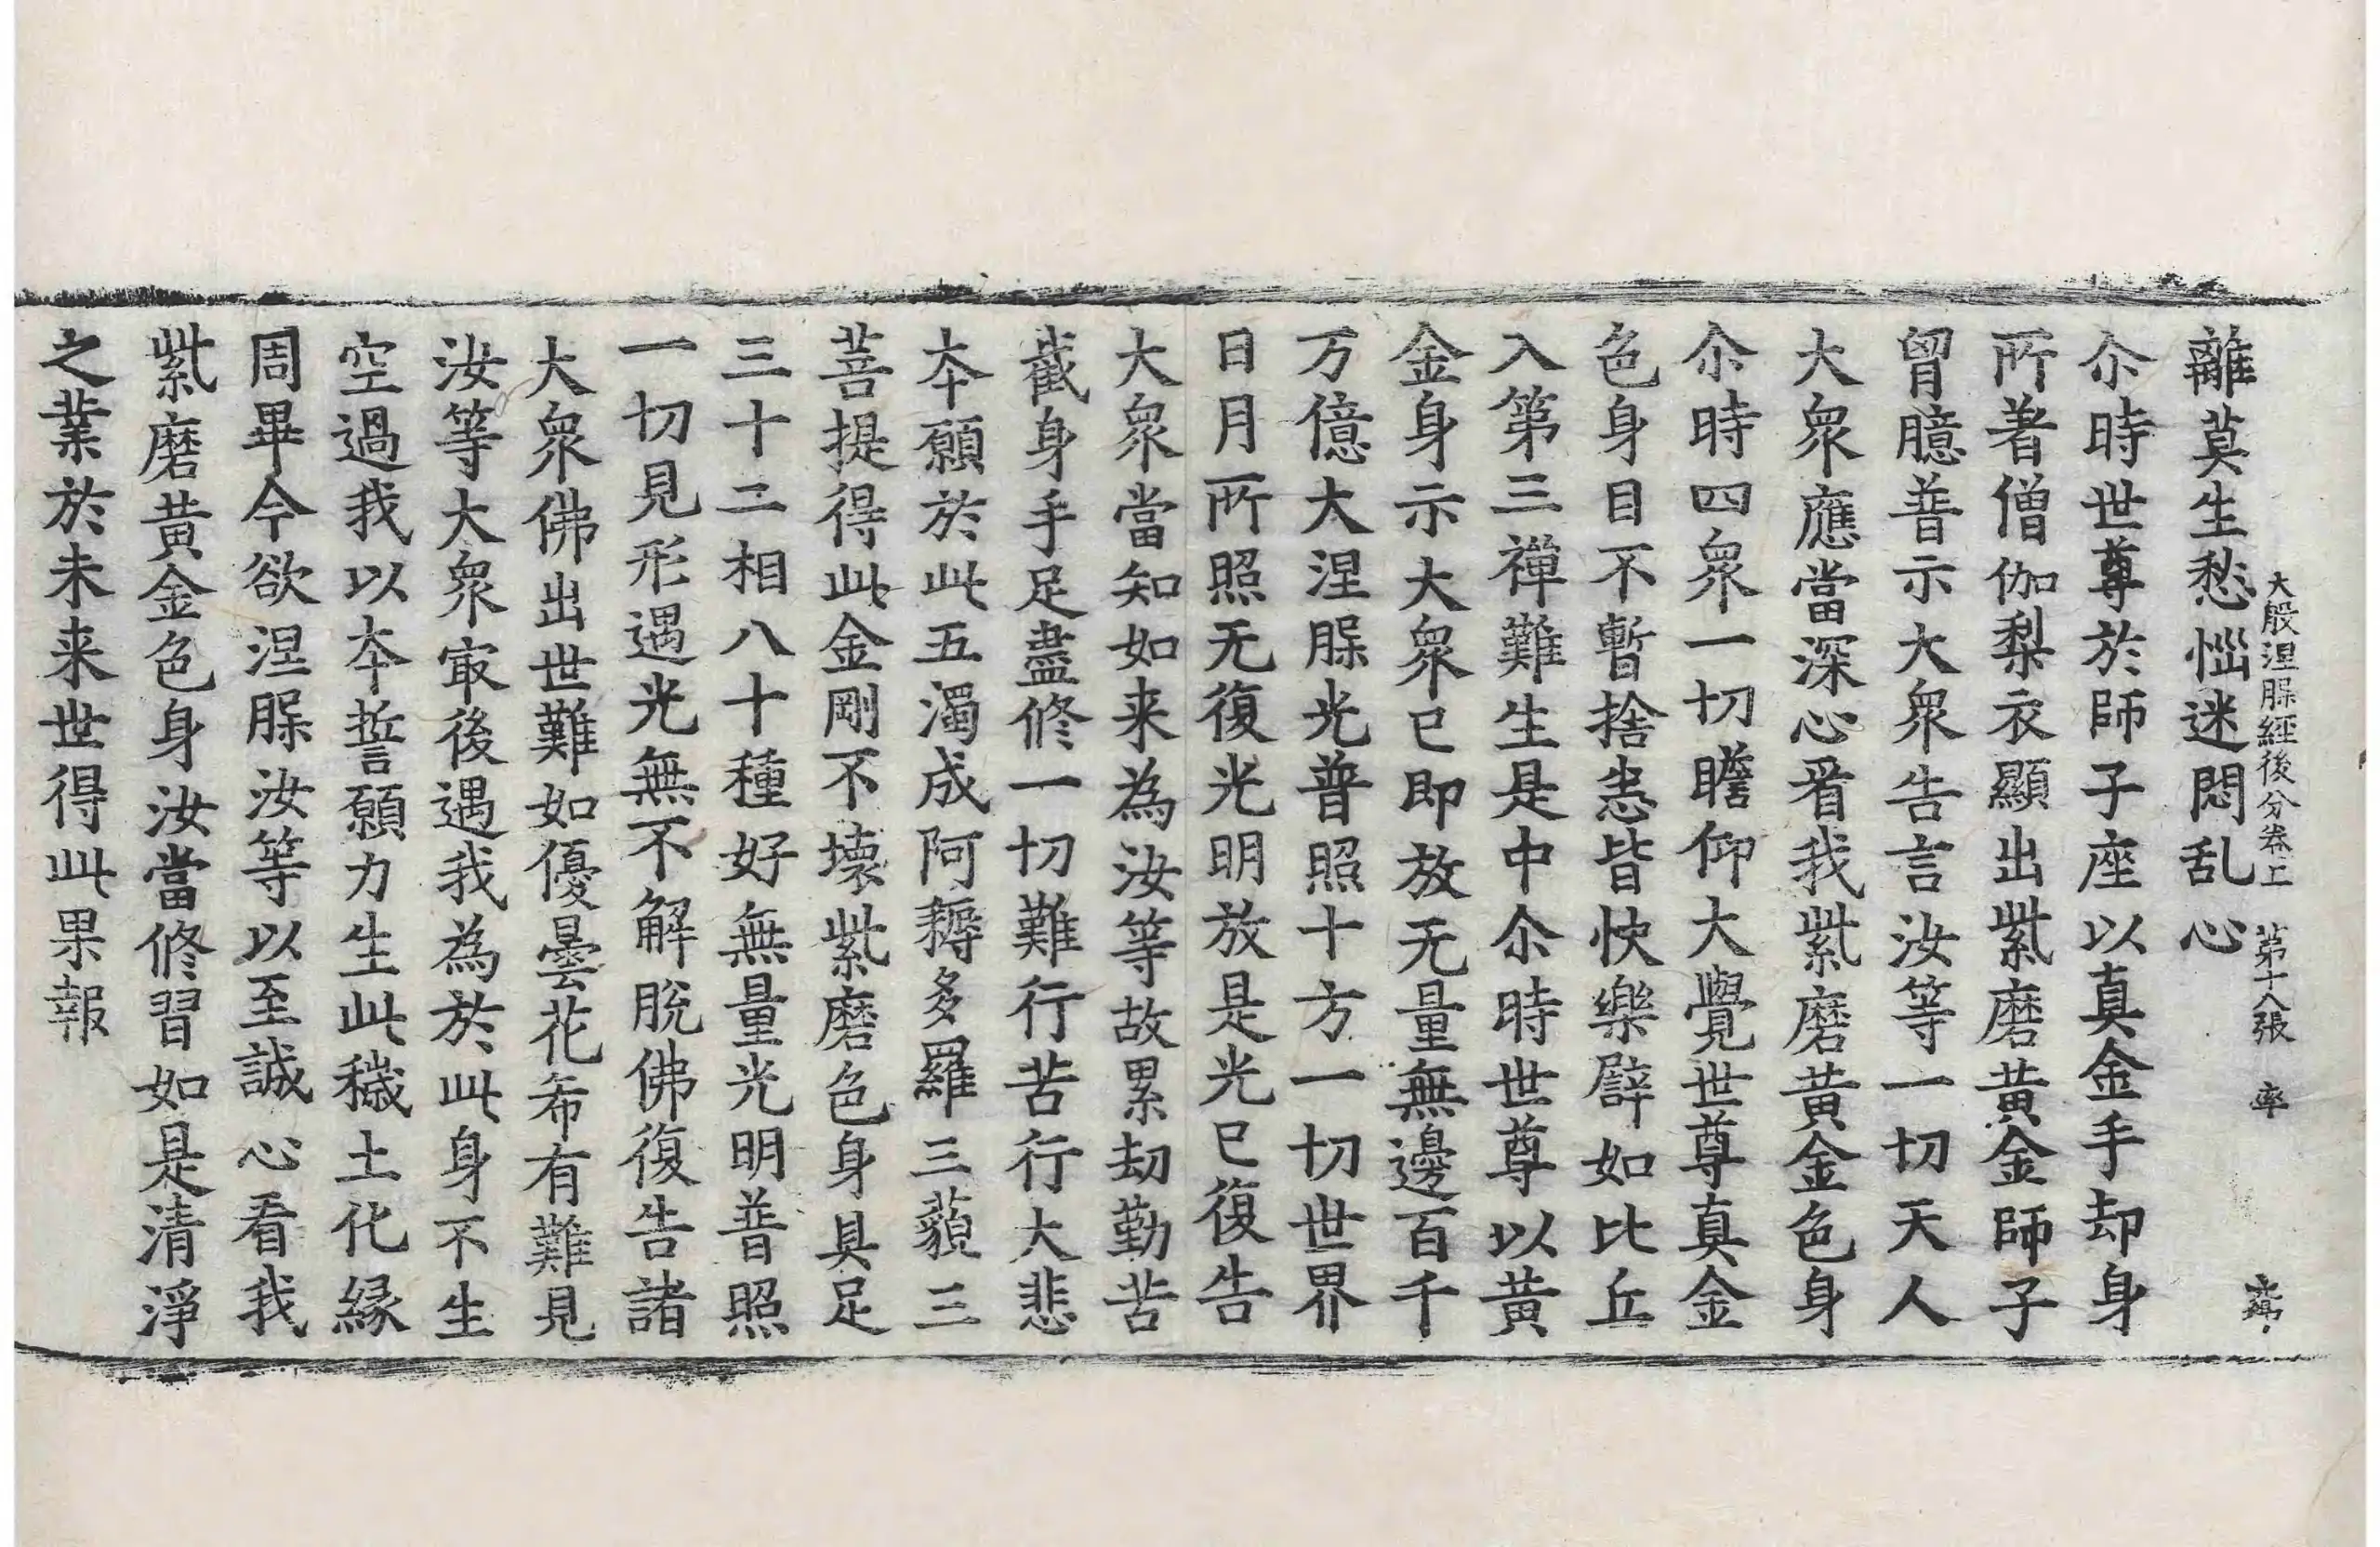 大般涅槃經後分卷上　第十八張　率
離莫生愁惱迷悶乱心
尒時世尊於師子座以真金手却身
所著僧伽梨衣顯出紫磨黃金師子
胷臆普示大眾告言汝等一切天人
大眾應當深心看我紫磨黃金色身
尒時四眾一切瞻仰大覺世尊真金
色身目不暫捨悉皆快樂譬如比丘
入第三禪難生是中尒時世尊以黃
金身示大眾已即放无量無邊百千
万億大涅槃光普照十方一切世界
日月所照无復光明放是光已復告
大眾當知如来為汝等故累劫勤苦
截身手足盡修一切難行苦行大悲
夲願於此五濁成阿耨多羅三藐三
菩提得此金剛不壞紫磨色身具足
三十二相八十種好無量光明普照
一切見形遇光無不解脫佛復告諸
大眾佛出世難如優曇花希有難見
汝等大眾冣後遇我為於此身不生
空過我以夲誓願力生此穢土化緣
周畢今欲涅槃汝等以至誠心看我
紫磨黃金色身汝當修習如是清淨
之業於未来世得此果報